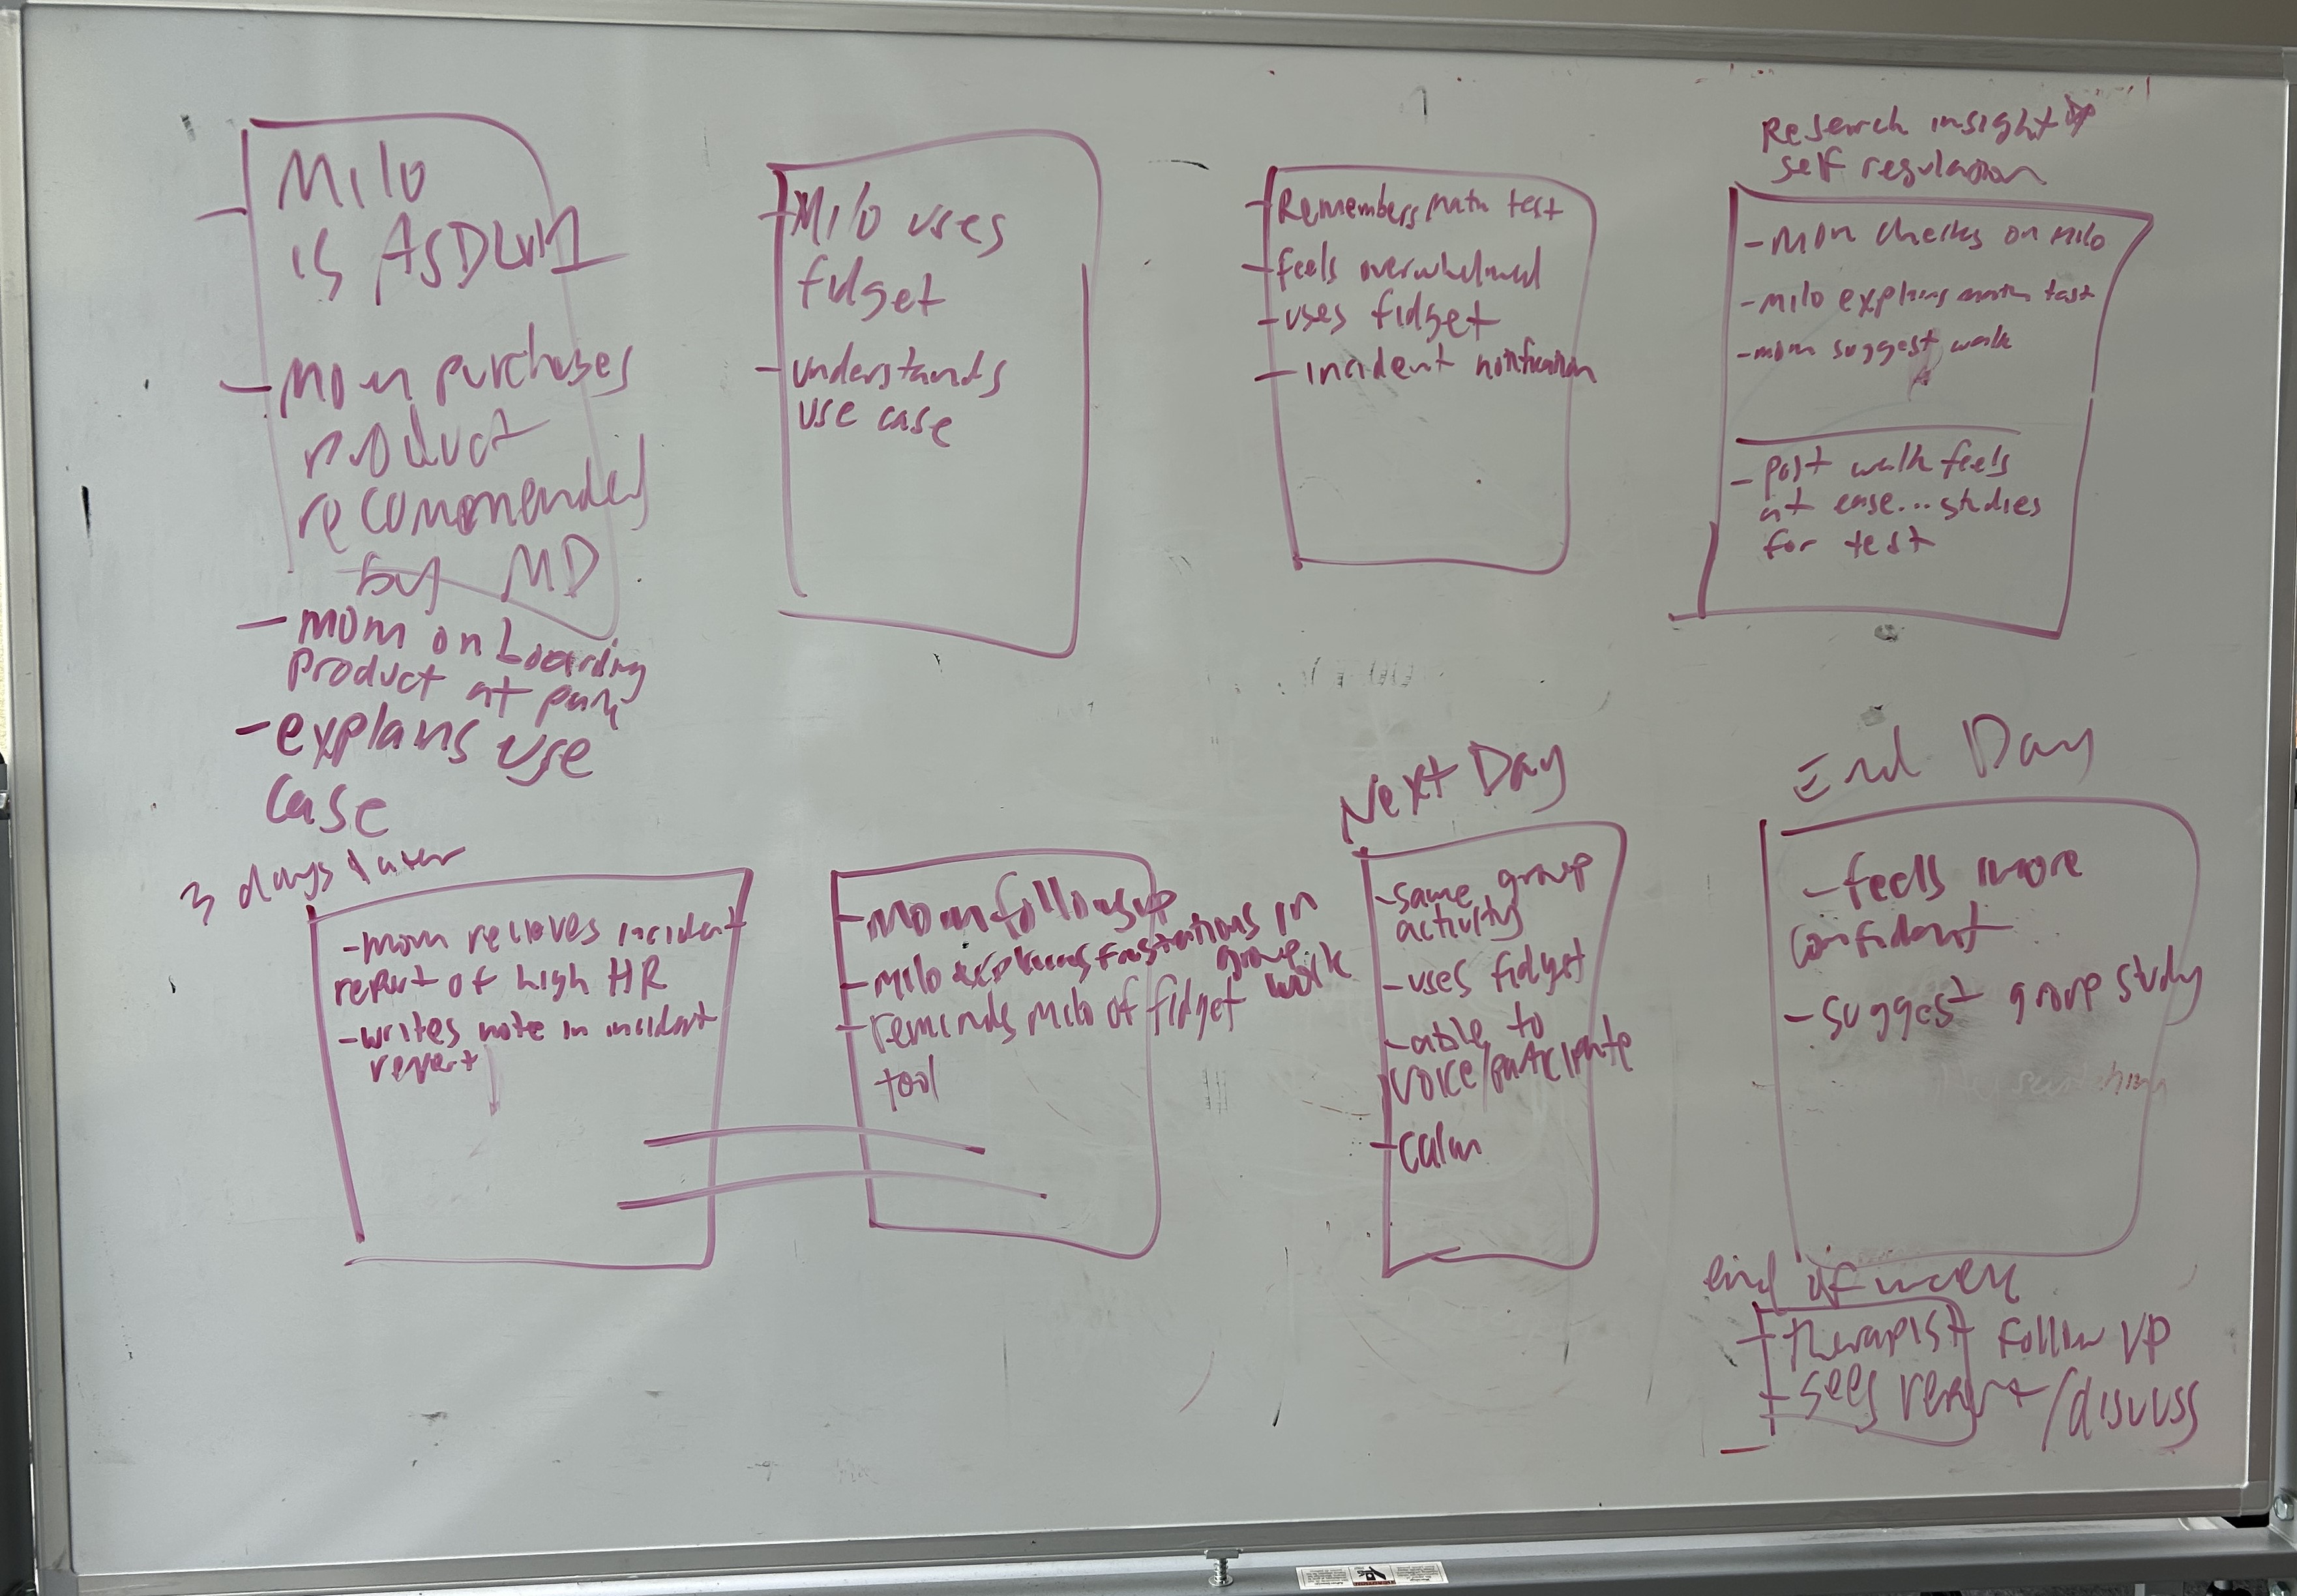 Milo
is ASD Lvl 1
- Mom purchases
product
recommended
by MD
- mom onboarding
product at park
- explans use
case
- Milo uses
fidget
- understands
use case
- Remembers math test
- feels overwhelmed
- uses fidget
- incident notification
Research insight
self regulation
- Mom checks on Milo
- Milo explains math test
- mom suggest walk
- post walk feels
at ease... studies
for test
3 days later
- mom recieves incident
report of high HR
- writes note in incident
report
- Mom follows up
- Milo explains frustrations in
group work
- reminds Milo of fidget
tool
Next Day
- same group
activity
- uses fidget
- able to
voice/participate
- calm
End Day
- feels more
confident
- suggest group study
end of week
- therapist follow up
- sees report/discuss